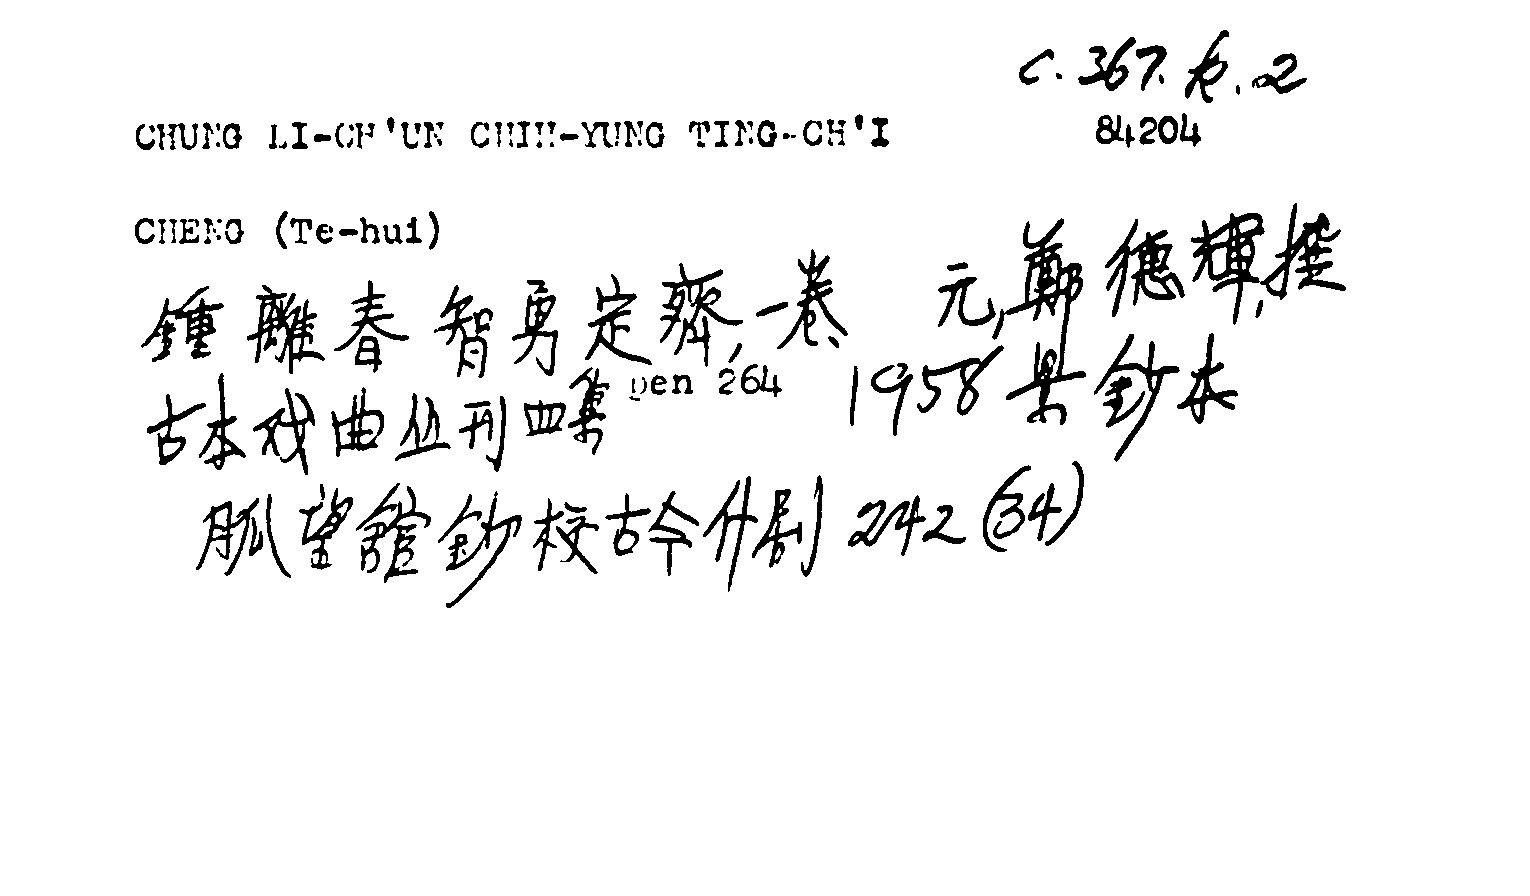 C. 367. k. 2
CHUNG LI-CH'UN CHIH-YUNG TING-CH'I 84204
CHENG (Te-hui)
鍾離春智勇定齊, 一卷、 元, 鄭德輝, 撰
古本戏曲丛刊四集 pen 264 1958 景鈔本
脈望館鈔校古今什剧 242 (34)